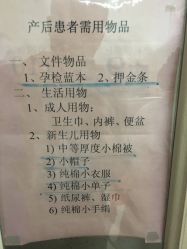 产后患者需用物品
一、文件物品
1、孕检蓝本 2、押金条
二、生活用物
1、成人用物：
卫生巾、内裤、便盆
2、新生儿用物
1) 中等厚度小棉被
2) 小帽子
3) 纯棉小衣服
4) 纯棉小单子
5) 纸尿裤、湿巾
6) 纯棉小手绢